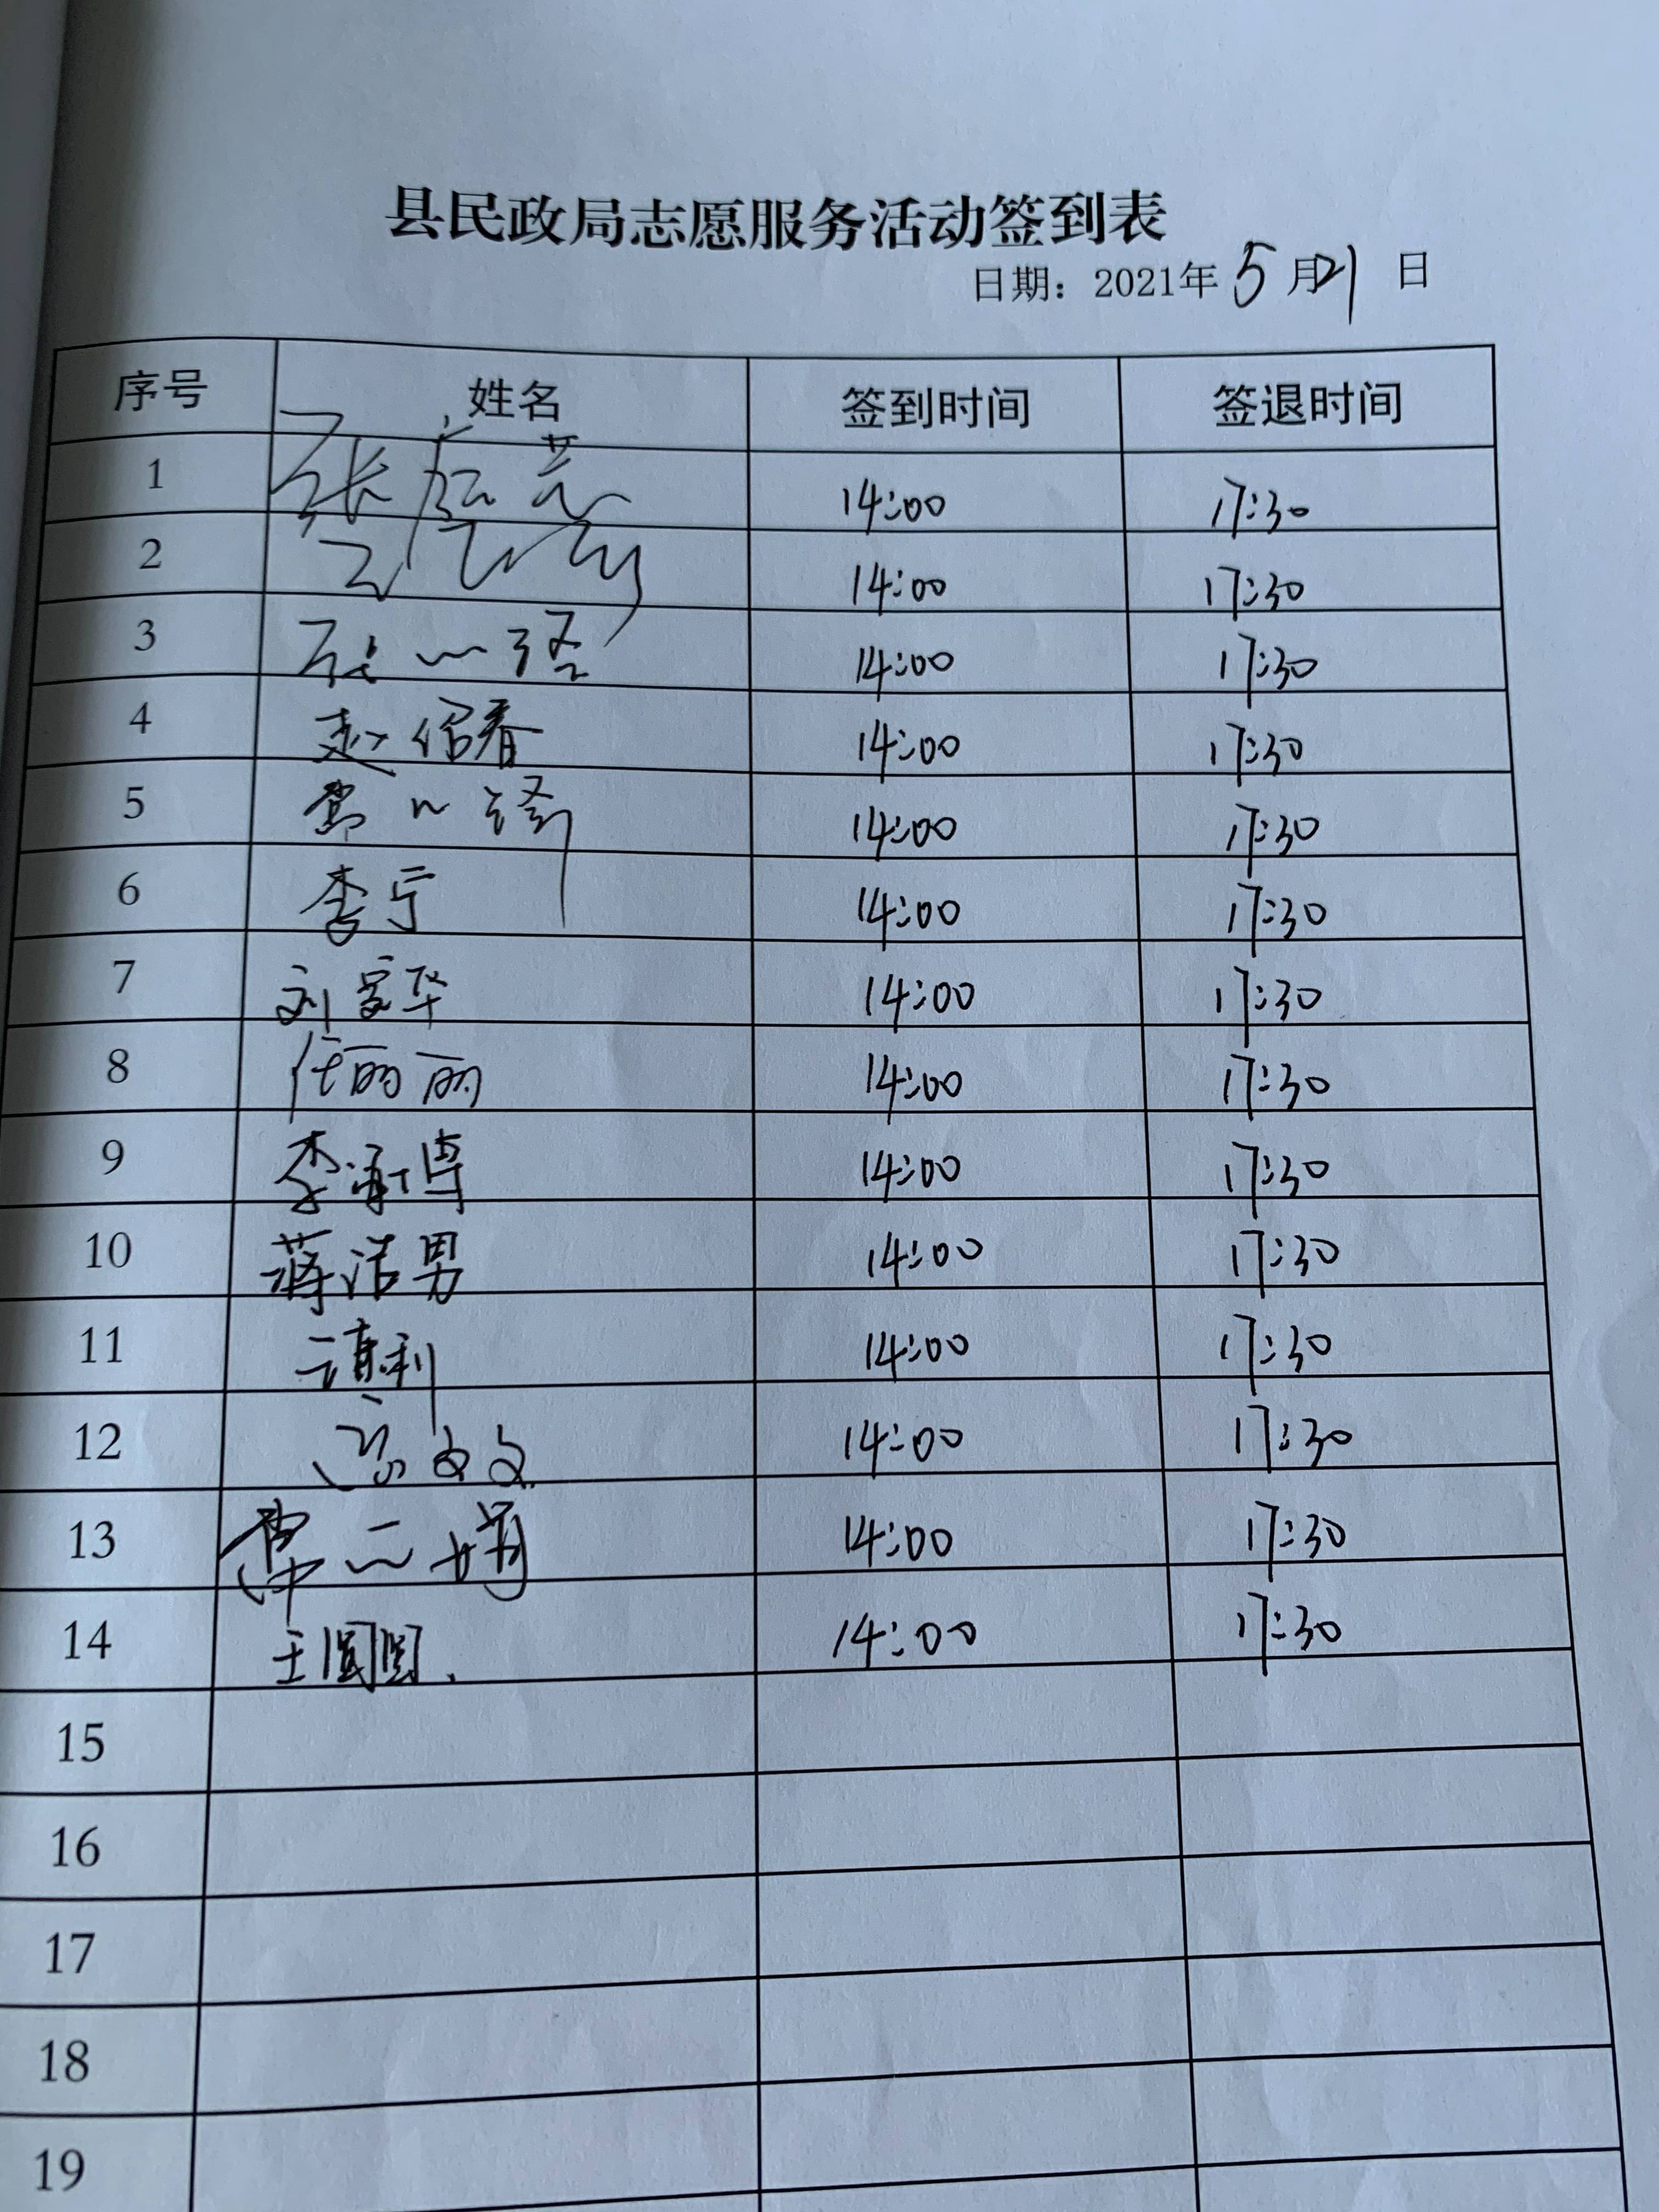 县民政局志愿服务活动签到表
日期：2021年5月21日
序号 姓名 签到时间 签退时间
1 张 14:00 17:30
2 14:00 17:30
3 张一 14:00 17:30
4 赵绍春 14:00 17:30
5 14:00 17:30
6 李宁 14:00 17:30
7 刘富华 14:00 17:30
8 任丽丽 14:00 17:30
9 李淑博 14:00 17:30
10 蒋洁男 14:00 17:30
11 14:00 17:30
12 文文 14:00 17:30
13 二娟 14:00 17:30
14 王圆圆. 14:00 17:30
15
16
17
18
19